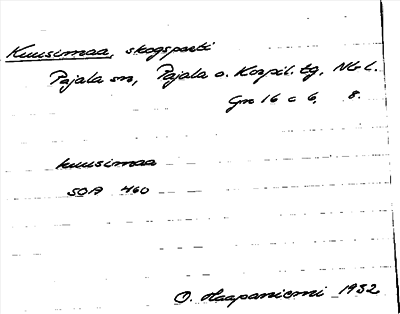 Kuusimaa, skogsparti
Pajala sn, Pajala o. Korpil. tg, Nb l.
Gru 16 c 6, 8.
kuusimaa
SOA 460
O. Haapaniemi 1932